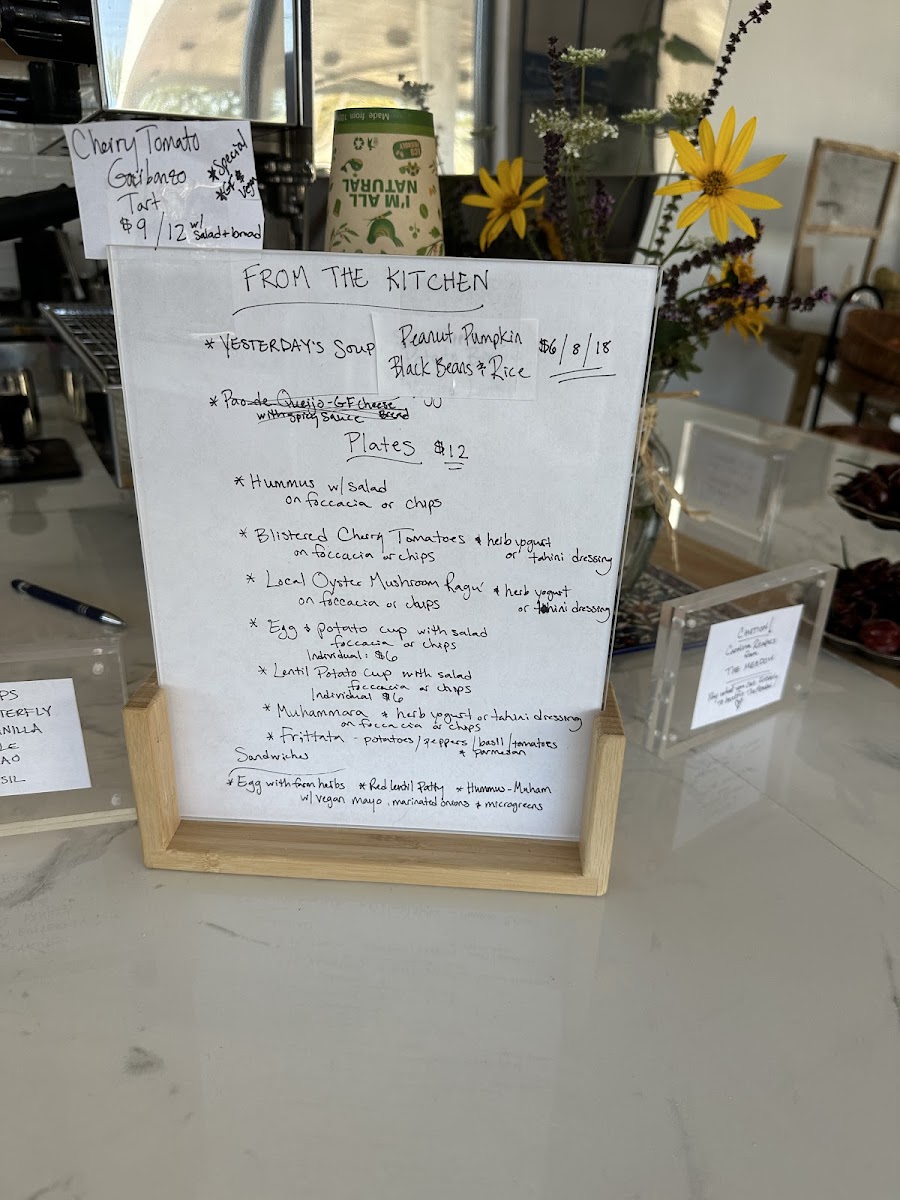 Cherry Tomato
Garbanzo
Tart
*Special
*GF &
Veg
$9/12 w/
Salad + bread
Made from 100
ECO
I'M ALL
NATURAL
FROM THE KITCHEN
*YESTERDAY'S SOUP Peanut Pumpkin $6/8/18
Black Beans & Rice
*Pao de Queijo-GF cheese
with spicy sauce Bread
Plates $12
*Hummus w/salad
on foccacia or chips
*Blistered Cherry Tomatoes & herb yogurt
on foccacia or chips or tahini dressing
*Local Oyster Mushroom Ragu & herb yogurt
on foccacia or chips or tahini dressing
*Egg & potato cup with salad
foccacia or chips
Individual: $6
*Lentil Potato Cup with salad
foccacia or chips
Individual $6
*Muhammara & herb yogurt or tahini dressing
on foccacia or chips
*Frittata - potatoes/peppers/basil/tomatoes
& parmesan
Sandwiches
*Egg with farm herbs *Red Lentil Patty *Hummus-Muham
w/ vegan mayo, marinated onions & microgreens
CAUTION!
Carolina Reapers
from
THE MEADOW
Pay what you can
PS
TERFLY
NILLA
LE
AO
SIL